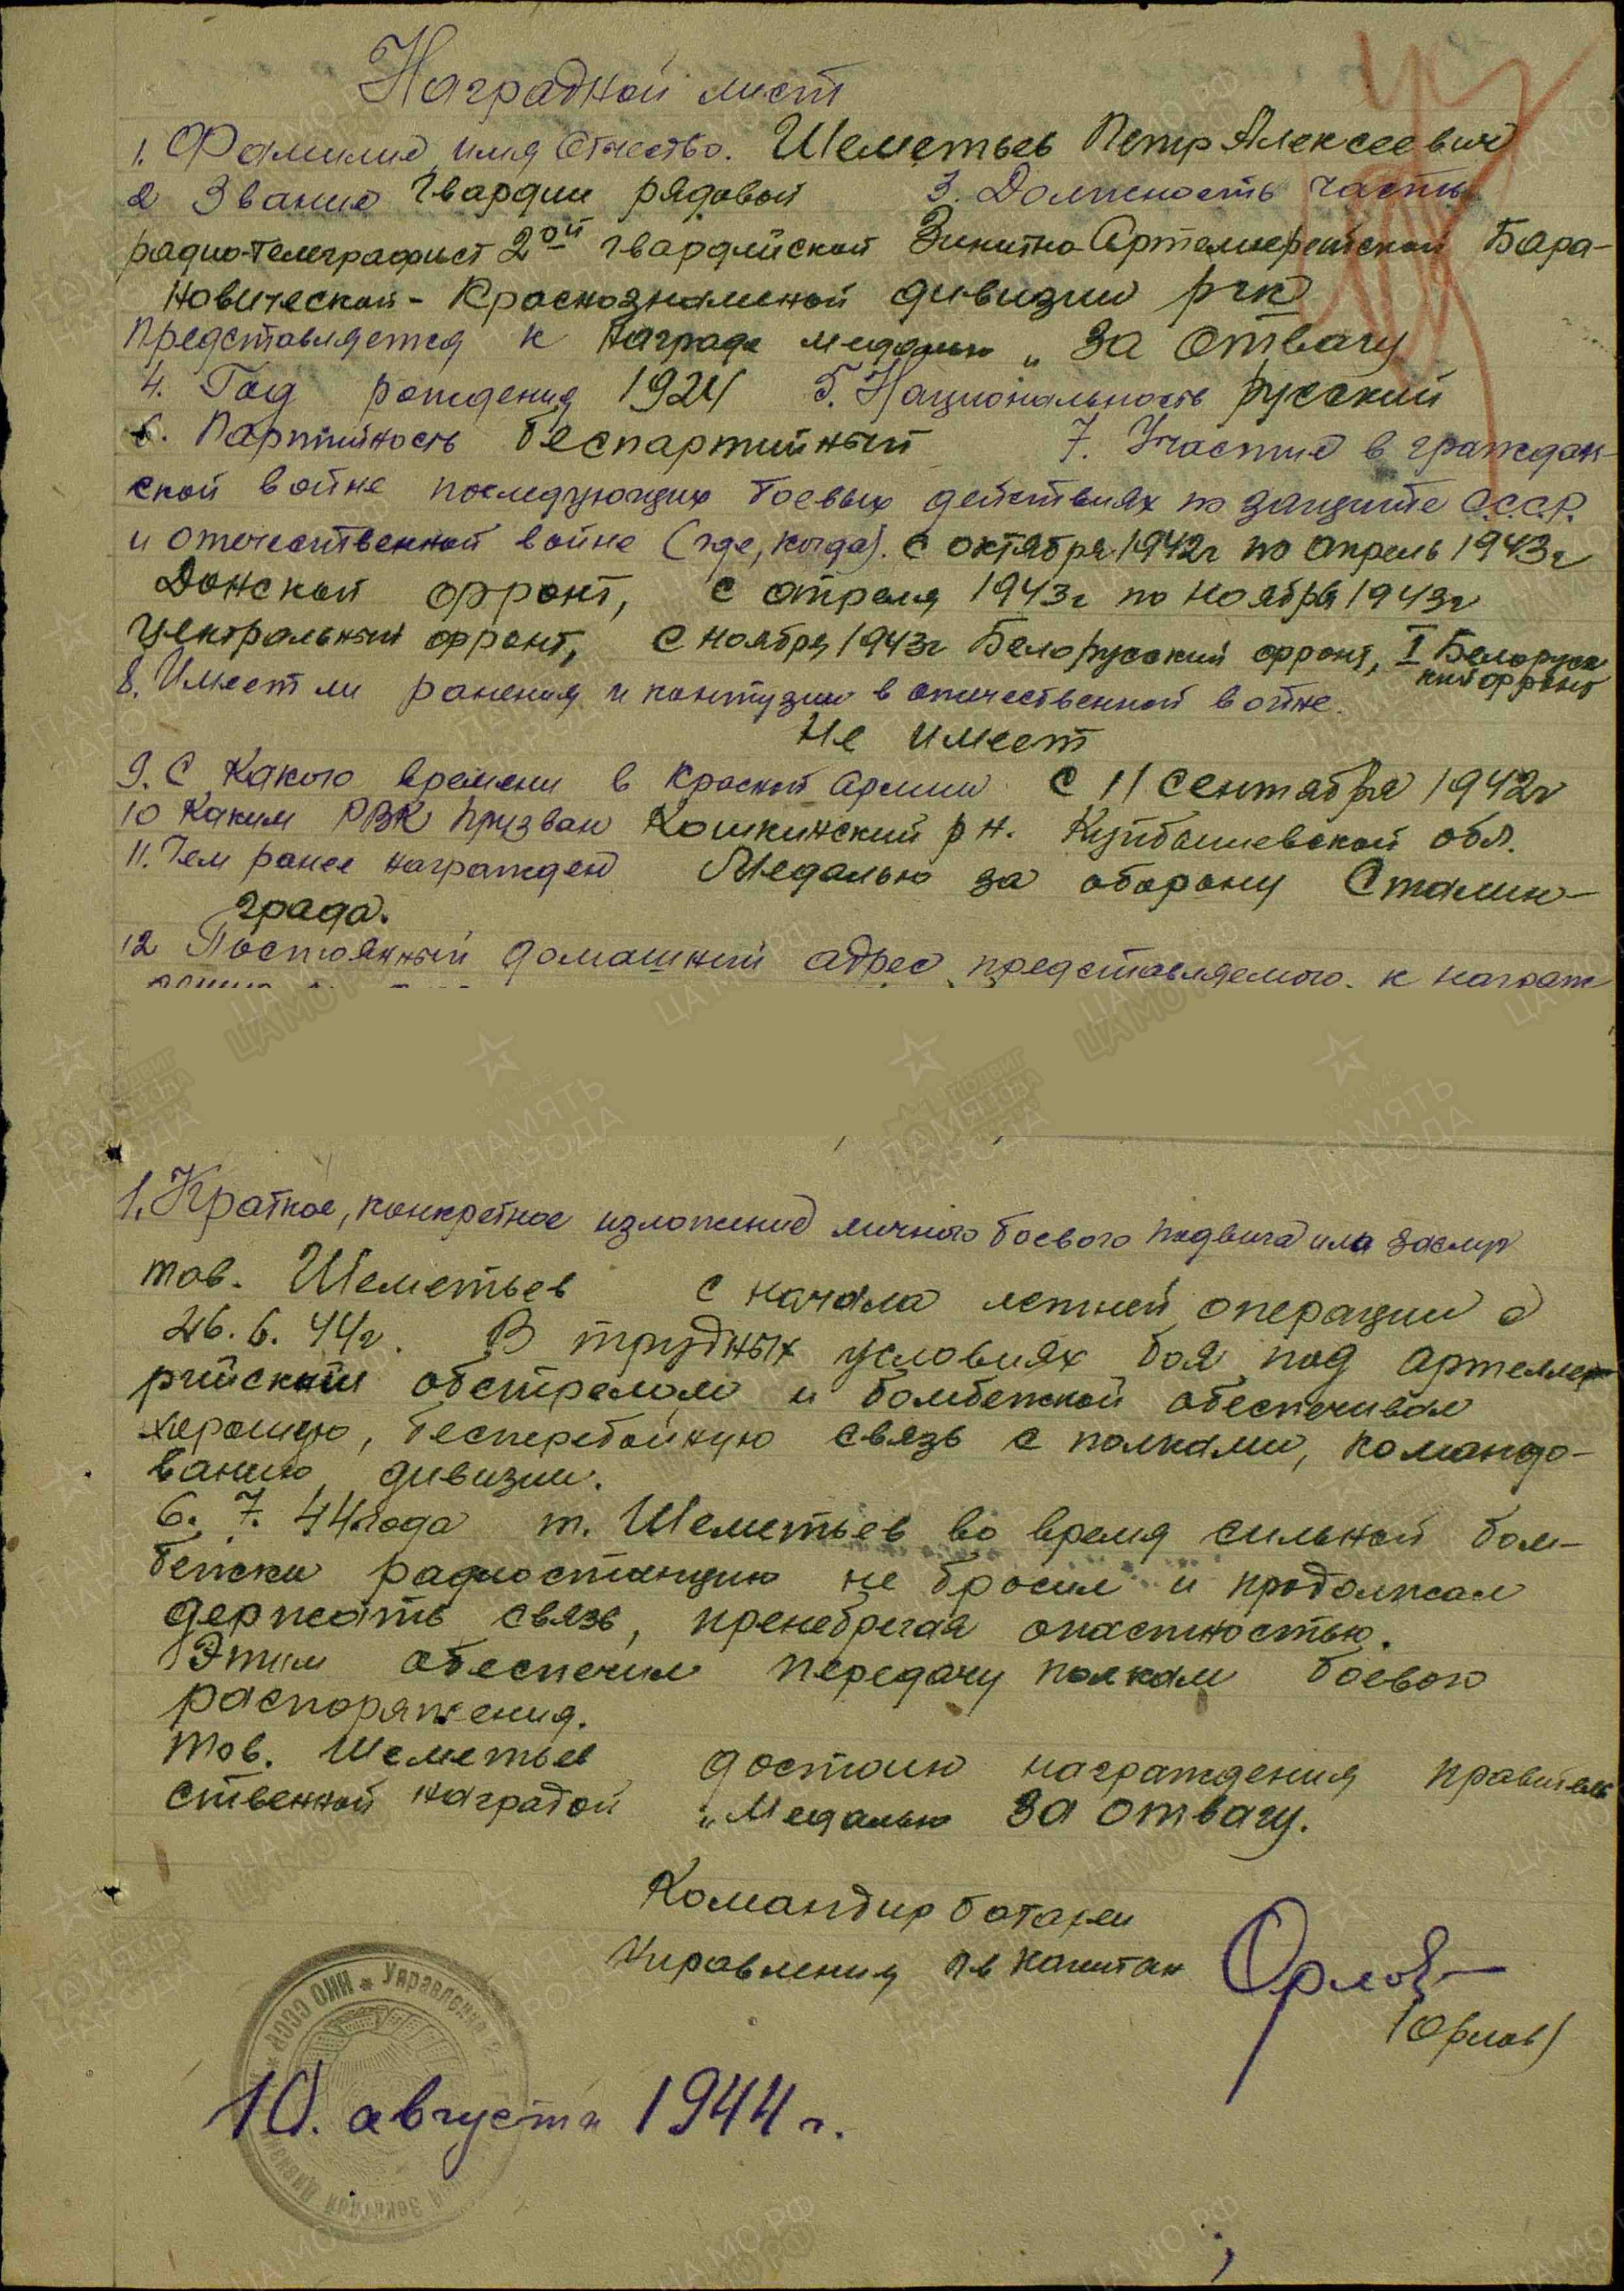 Наградной лист
1. Фамилие, имя Отчество. Шеметьев Петр Алексеевич
2 Звание гвардии рядовой 3. Должность часть
радио-телеграфист 2ой гвардейской Зинитно-Артелиерейской Бара-
новической-Краснознаменной дивизии ргк
Представляется к награде медалью „За отвагу
4. Год рождения 1924 5. Национальность русский
6. Партийность беспартийный 7. Участие в граждан-
ской войне последующих боевых действиях по защите С.С.С.Р.
и отечественной войне (где, когда). С октября 1942г по апрель 1943г
Донской фронт, с апреля 1943г по ноября 1943г
Центральный фронт, с ноября 1943г Белорусский фронт, I Белорус
кий фронт
8. Имеет ли ранения и контузии в отечественной войне.
Не имеет
9. С какого времени в Красной армии с 11 сентября 1942г
10 Каким РВК призван Кошкинский р н. Куйбышевской обл.
11. Чем ранее награжден Медалью за оборону Сталин-
града.
12 Постоянный домашний адрес представляемого к награж
1. Краткое, конкретное изложение личного боевого подвига или заслуг
тов. Шеметьев с начала летней операции с
26.6.44г. В трудных условиях боя под артеллер
рийским обстрелом и бомбежкой обеспечивал
хорошую, бесперебойную связь с полками, командо-
ванию дивизии.
6.7.44 года т. Шеметьев во время сильной бом-
бежки радиостанцию не бросил и продолжал
держать связь, пренебрегая опасностью.
Этим обеспечил передачу полкам боевого
распоряжения.
Тов. Шеметьев достоин награждения правитель
ственной наградой „Медалью За отвагу.
Командир батареи
Управления гв капитан Орлов
(Орлов)
НКО СССР * Управление 2-й
10. августа 1944 г.
ЦАМО РФ
ПАМЯТЬ НАРОДА
1941-1945
ПОДВИГ НАРОДА